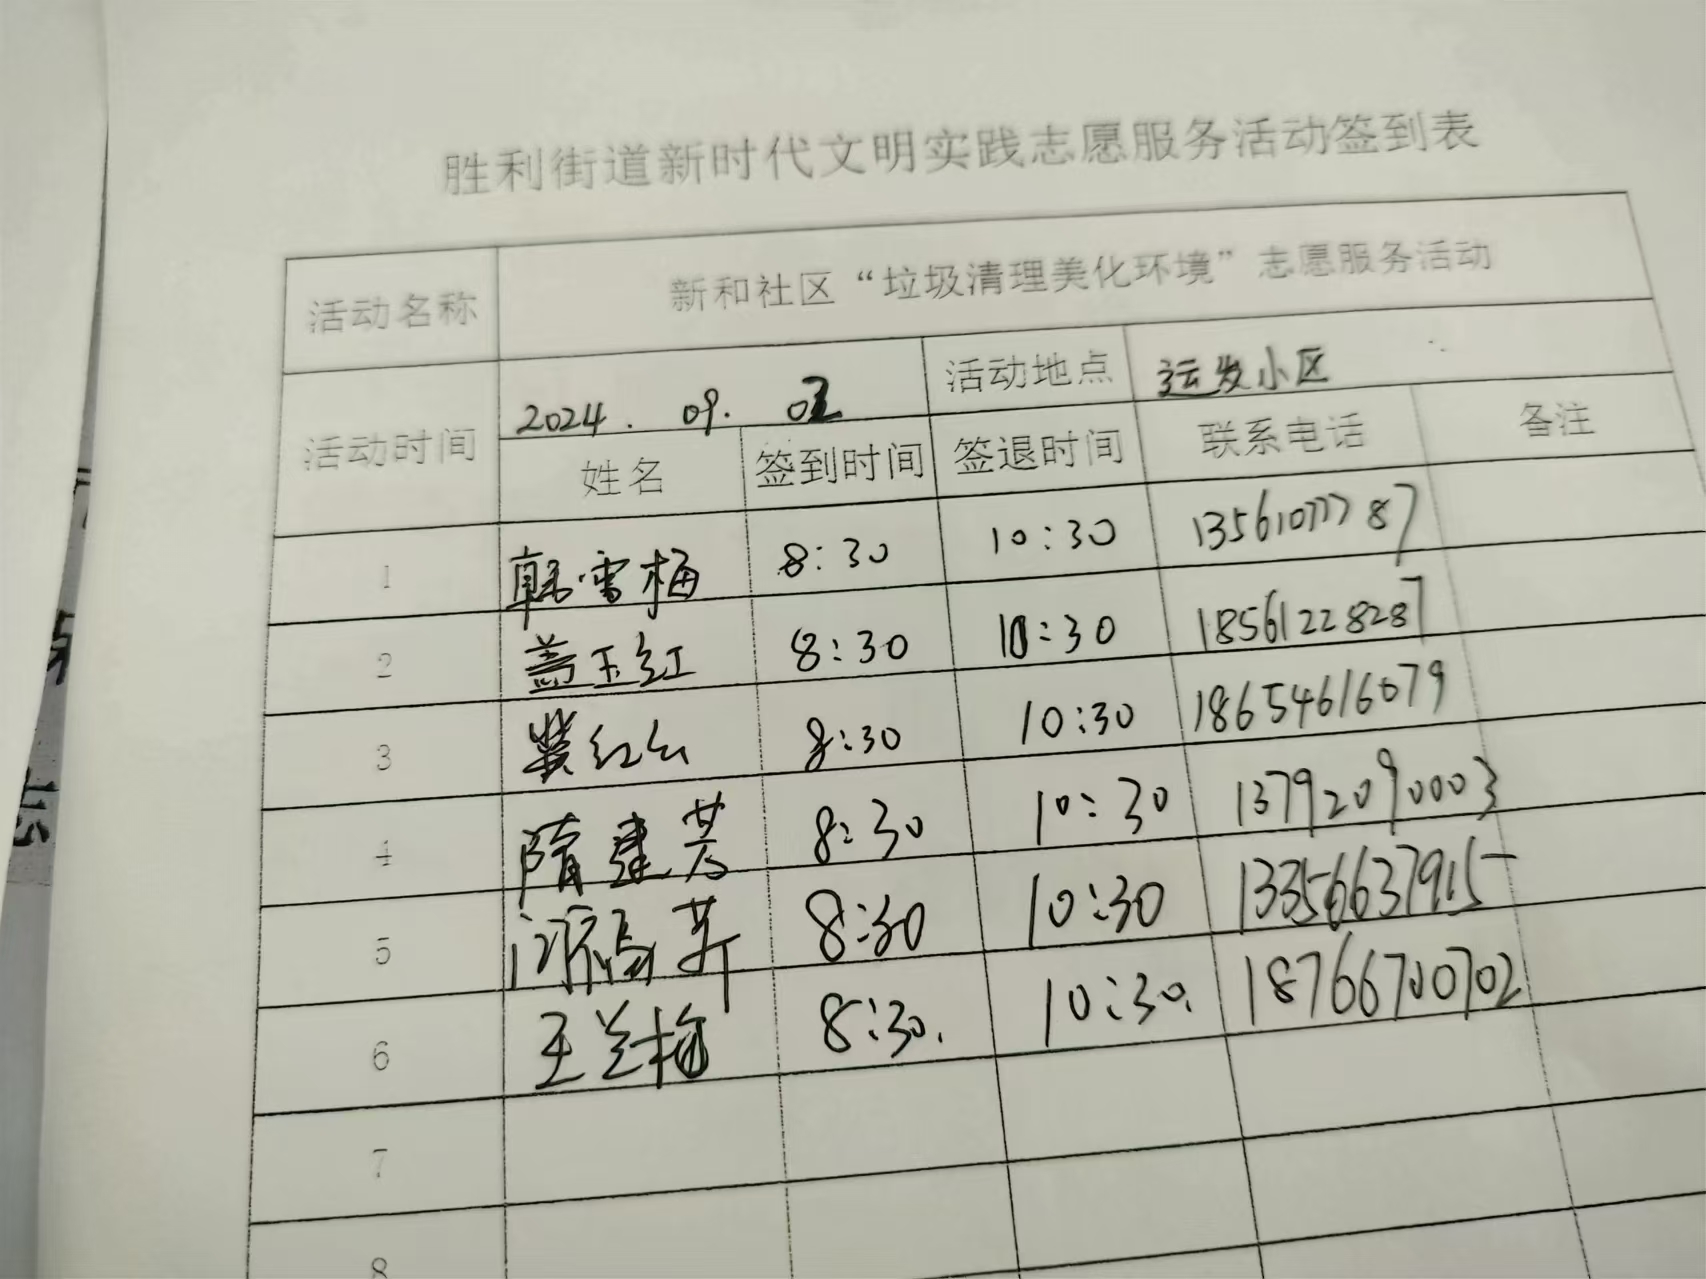 胜利街道新时代文明实践志愿服务活动签到表
活动名称 新和社区“垃圾清理美化环境”志愿服务活动
活动时间 2024.09. 活动地点 运发小区
姓名 签到时间 签退时间 联系电话 备注
1 韩雪梅 8:30 10:30 13561077787
2 盖玉红 8:30 10:30 18561228287
3 红 8:30 10:30 18654616079
4 隋建芳 8:30 10:30 13792090003
5 8:30 10:30 13356637915
6 王兰梅 8:30. 10:30. 18766700702
7
8